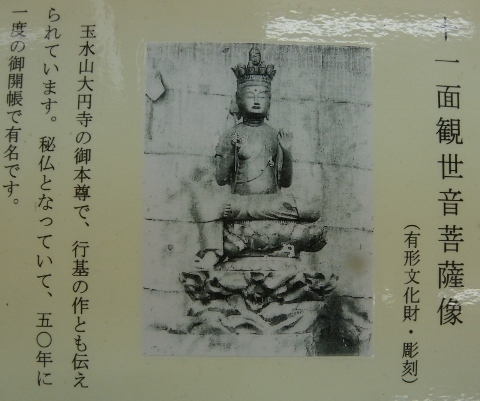 十一面観世音菩薩像
（有形文化財・彫刻）
玉水山大円寺の御本尊で、行基の作とも伝え
られています。秘仏となっていて、五〇年に
一度の御開帳で有名です。